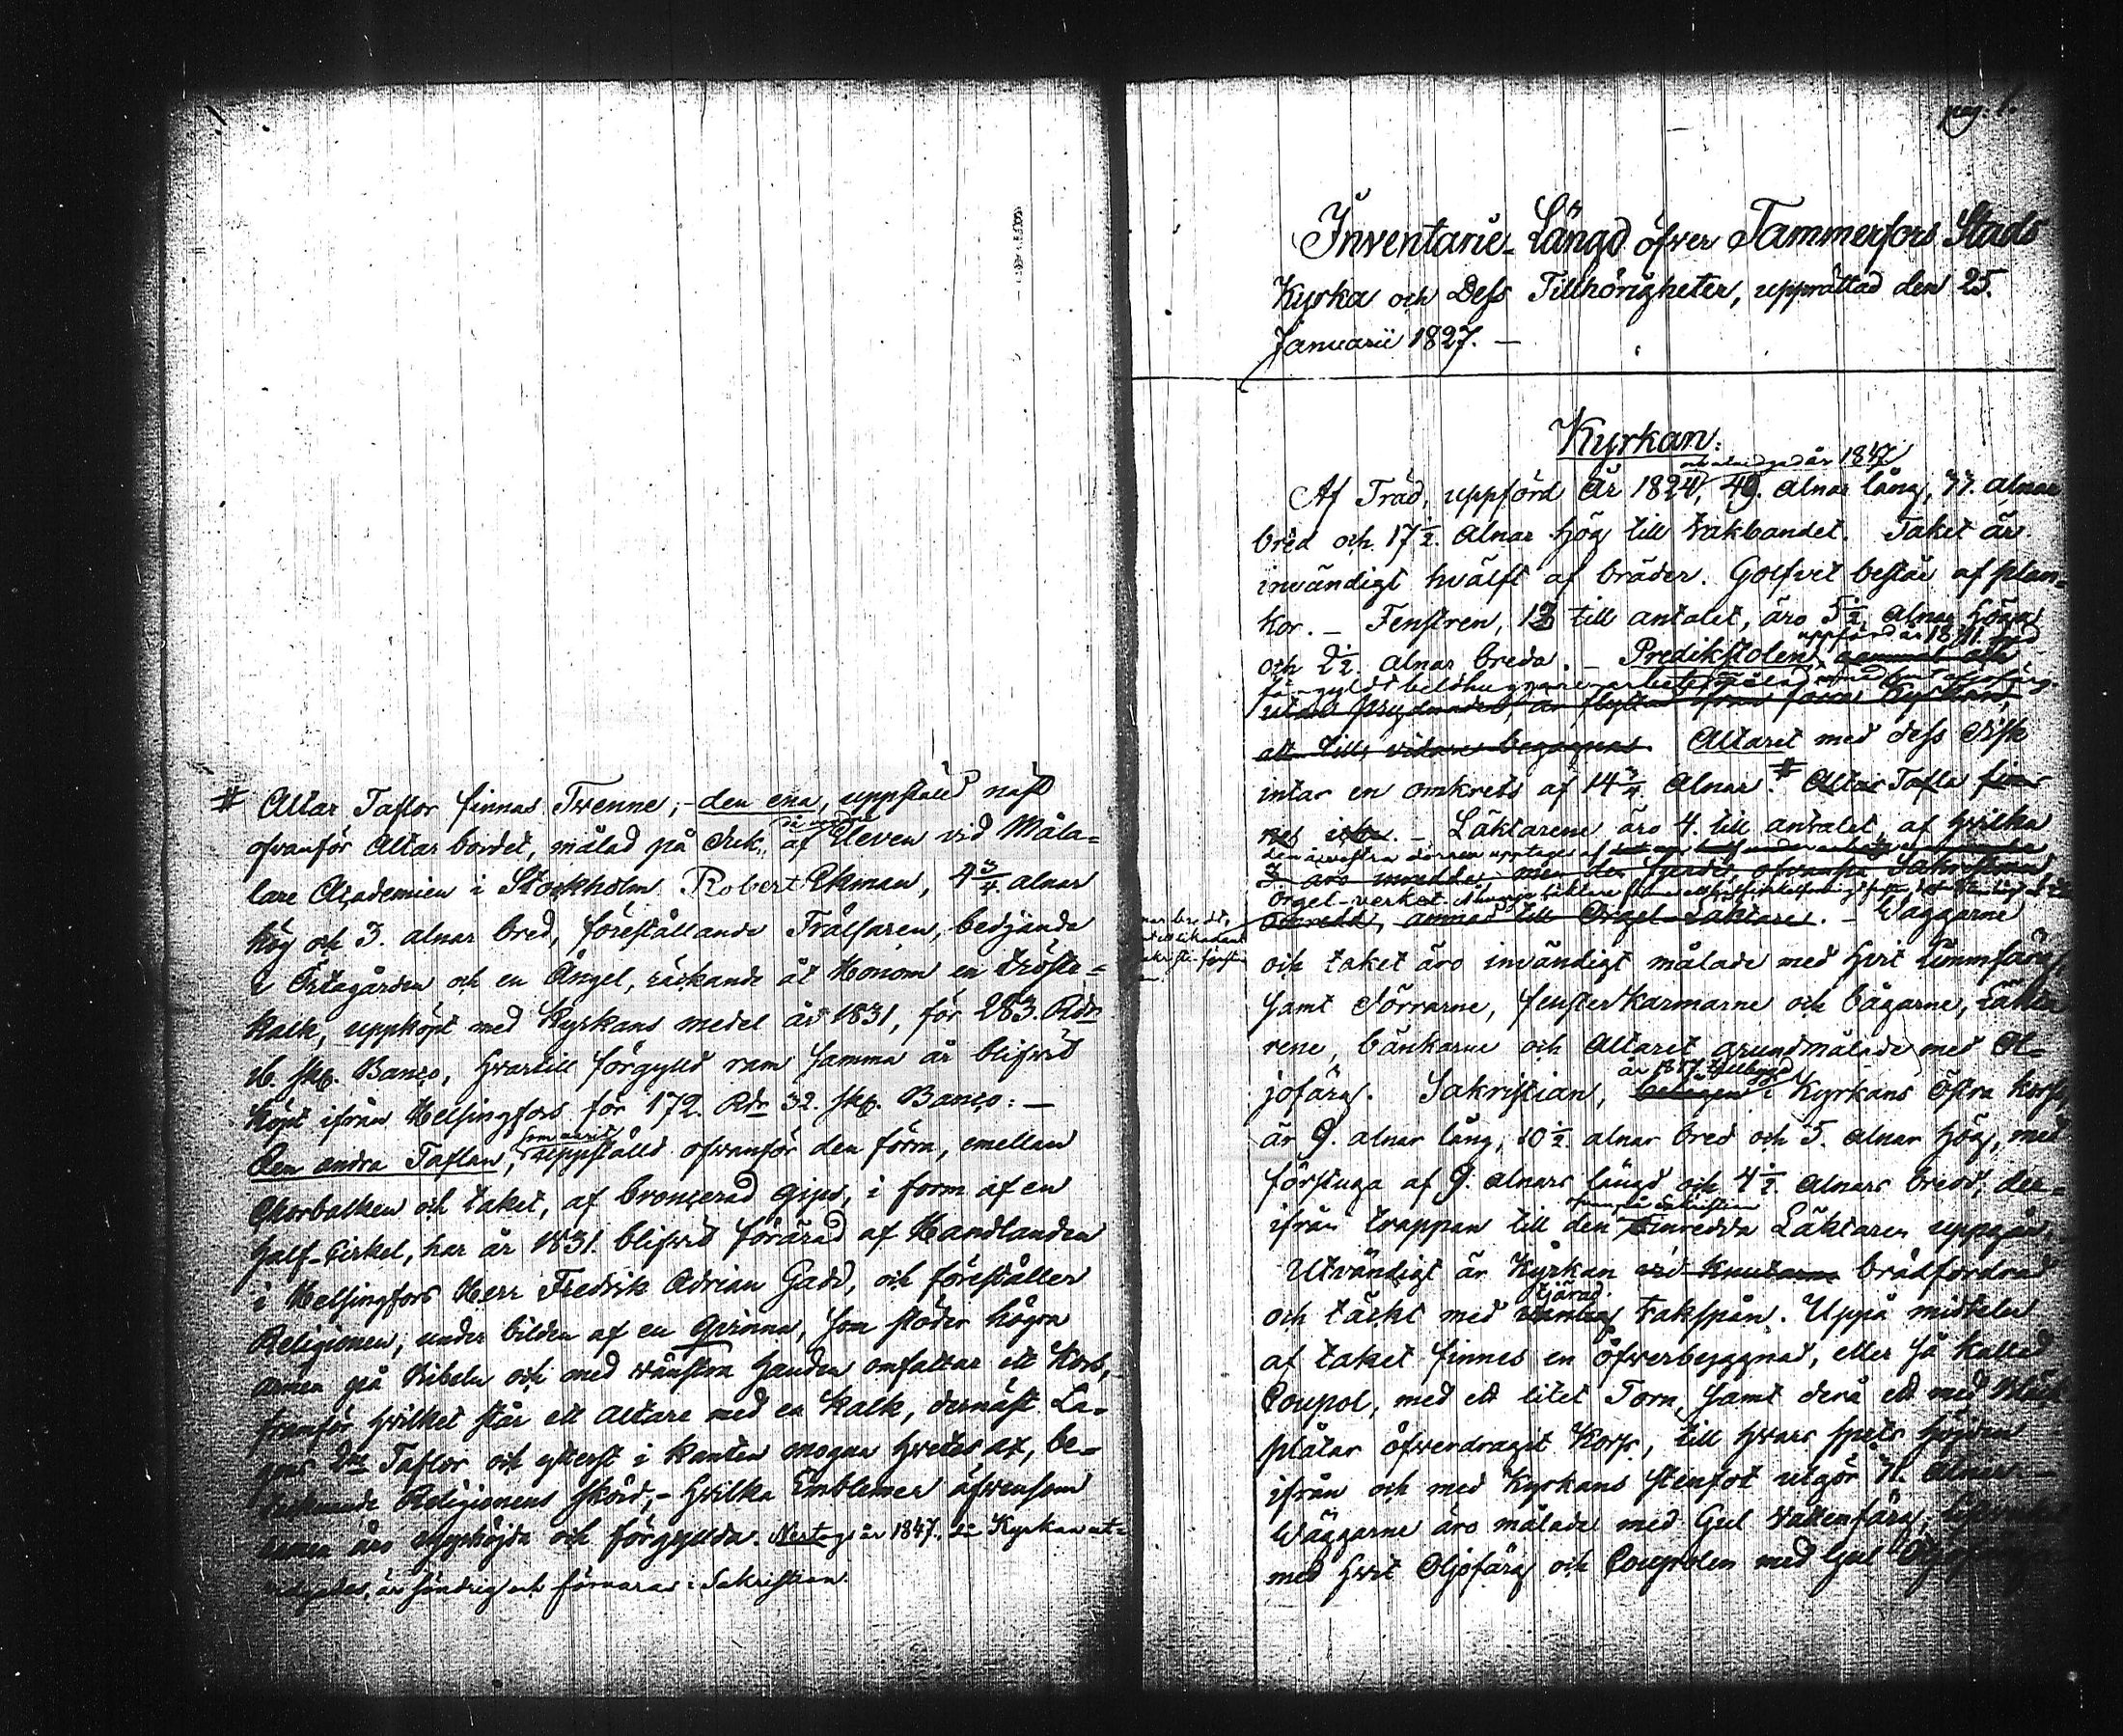 # Altar Taflor finnas Twenne; - den ena, uppställd näst
ofvanför Altar bordet, målad på duk, af då varande Eleven vid Måla-
lare Academien i Stockholm Robert Ekman, 4 3/4 alnar
hög och 3. alnar bred, föreställande Frälsaren, bedjande
i Örtagården och en Ängel, räckande åt Honom en tröste-
kalk, uppköpt med Kyrkans medel år 1831, för 283. Rdr
16. sk. Banco, hvartill förgylld ram samma år blifvid
köpt ifrån Helsingfors för 172. Rdr 32. sk. Banco: -
Den andra Taflan, som varit uppställd ofvanför den förra, emellan
Chorbalken och taket, af broncerad gips, i form af en
half-Cirkel, har år 1831. blifvid förärad af Handlanden
i Helsingfors Herr Fredrik Adrian Gadd, och föreställer
Religionen, under bilden af en Qvinna, som stöder högra
armen på Bibeln och med vänstra handen omfattar ett Kors,
framför hvilket står ett Altare med en Kalk, dernäst La-
gens Taflor och ytterst i kanten mogna hvetes ax, be-
tecknande Religionens skörd, - hvilka Emblemer äfvensom
ramen äro upphöjda och förgyllda. Nertogs år 1847. då Kyrkan ut-
vidgades, är söndrig och förvaras i Sakristian.
pag. 1.
Inventarie-Längd öfver Tammerfors Stads
Kyrka och Dess Tillhörigheter, upprättad den 25.
Januarii 1827. -
Kyrkan.
och utvidgad år 1847
Af Träd, uppförd År 1824, 49. alnar lång, 77. alnar
bred och 17 1/2. alnar hög till takbandet. Taket är
invändigt hvälft af bräder. Golfvet består af plan-
kor. - Fenstren, 13 till antalet, äro 5 1/2 alnar höga
uppförd år 1841. med
och 2 1/2. alnar breda. - Predikstolen, gammal och
förgyldt bildhuggare-arbete
utan prydnader, är flyttad ifrån förra Kyrkan,
att tills vidare begagnas. Altaret med dess disk
intar en omkrets af 14 3/4 Alnar. # Altar Tafla fin-
nes icke. - Läktarene äro 4. till antalet, af hvilka
den i vestra dörren upptages af
3 äro inredda, men den fjerde, ofvanför Sakristian
Orgel-verket.
oinredd, ämnad till Orgel-Läktare. - Waggarne
och taket äro invändigt målade med hvit limmfärg,
samt dörrarne, fensterkarmarne och bågarne, Läkta-
rene, bänkarne och Altaret grundmålade med Ol-
år 1847. tillbygd
jofärg. Sakristian, belägen i Kyrkans Östra kors,
är 9. alnar lång, 10 1/2. alnar bred och 5. alnar hög, med
förstuga af 9. alnars längd och 4 1/2. alnars bredd, der-
ifrån trappan till den oinredda Läktaren uppgår.
Utvändigt är Kyrkan vid knutarne brädfordrad
tjärad
och täckt med takspån. Uppå midtelen
af taket finnes en öfverbyggnad, eller så kallad
Coupol, med ett litet Torn, samt derå ett med Bläck
plåtar öfverdragit Kors, till hvars spets höjden
ifrån och med Kyrkans stenfot utgör 71. alnar -
Wäggarne äro målade med Gul vattenfärg,
med hvit Oljofärg och Coupolen med Gul